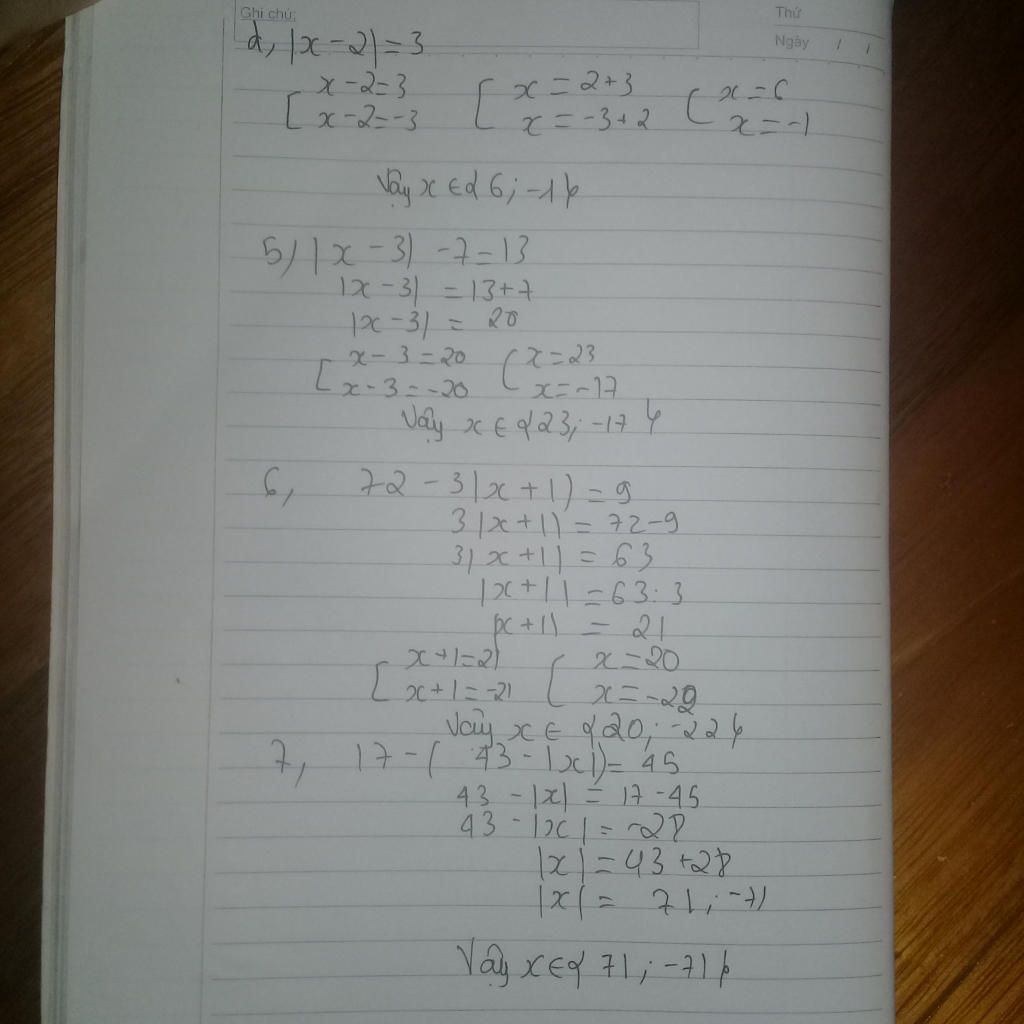 Ghi chú:
Thứ
Ngày / /
d, |x-2|=3
[ x-2=3 [ x=2+3 [ x=6
x-2=-3 x=-3+2 x=-1
Vậy x ∈ {6; -1}
5) |x-3| -7=13
|x-3| =13+7
|x-3| = 20
[ x-3=20 [ x=23
x-3=-20 x=-17
Vậy x ∈ {23; -17}
6, 72-3|x+1|=9
3|x+1|=72-9
3|x+1|=63
|x+1|=63:3
|x+1| = 21
[ x+1=21 [ x=20
x+1=-21 x=-22
Vậy x ∈ {20; -22}
7, 17-(43-|x|)=45
43-|x|=17-45
43-|x|=-28
|x|=43+28
|x|= 71; -71
Vậy x ∈ {71; -71}